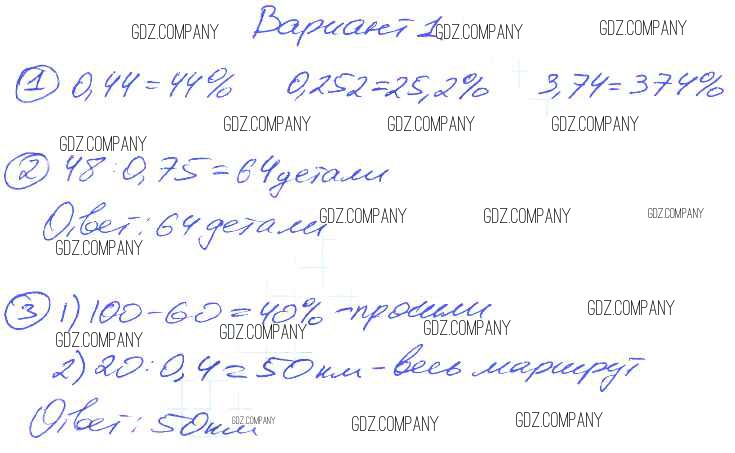 GDZ.COMPANY Вариант 1 GDZ.COMPANY GDZ.COMPANY
① 0,44 = 44% 0,252 = 25,2% 3,74 = 374%
GDZ.COMPANY GDZ.COMPANY GDZ.COMPANY
GDZ.COMPANY
② 48 : 0,75 = 64 детали
Ответ: 64 детали GDZ.COMPANY GDZ.COMPANY GDZ.COMPANY
GDZ.COMPANY
③ 1) 100 - 60 = 40% - GDZ.COMPANY
GDZ.COMPANY GDZ.COMPANY GDZ.COMPANY
2) 20 : 0,4 = 50 км - весь маршрут
Ответ: 50 км GDZ.COMPANY GDZ.COMPANY GDZ.COMPANY